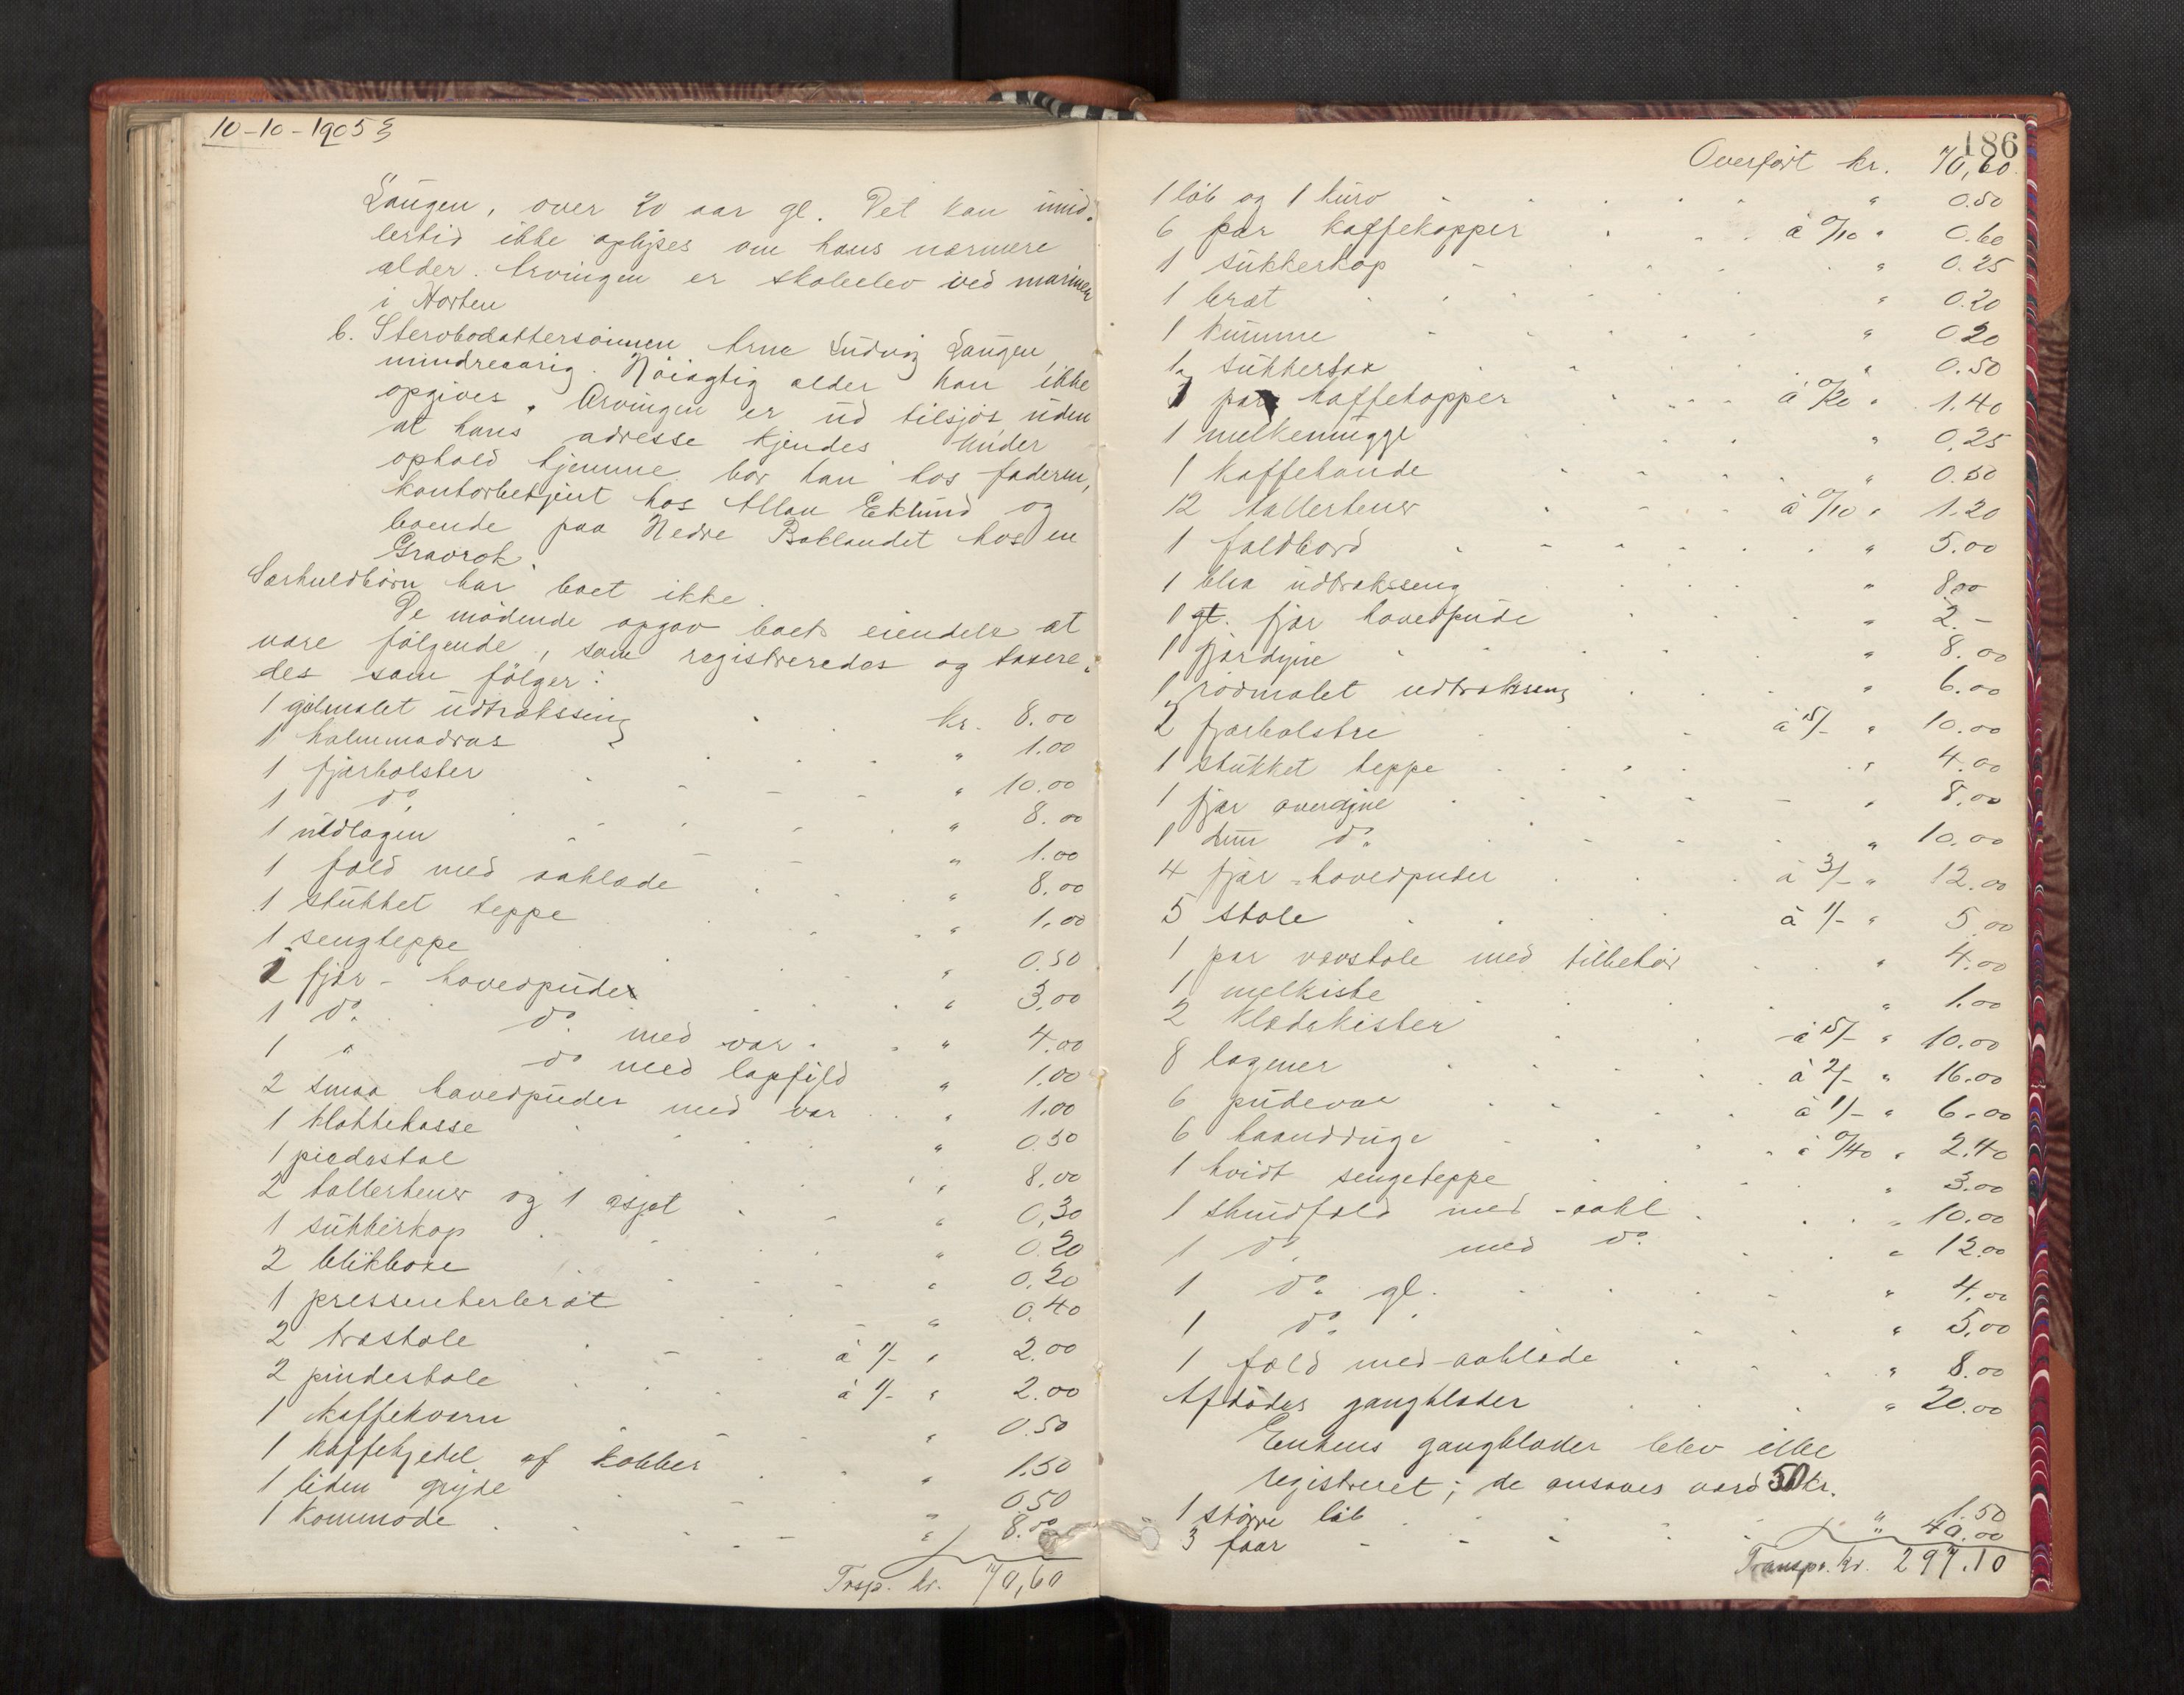 10-10-1905
Laugen, over 20 aar gl. Det kan imid-
lertid ikke oplyses om hans nærmere
alder. Arvingen er skoleelev ved marinen
i Horten
b. Stervbodattersönnen Arne Ludvig Laugen,
mindreaarig. Nöiagtig alder kan ikke
opgives. Arvingen er ud tilsjös, uden
at hans adresse kjendes Under
ophold hjemme bor han hos faderen,
kontorbetjent hos Allan Eklund og
boende paa Nedre Baklandet hos en
Gravrok.
Særkuldbörn har boet ikke.
De mödende opgav boets eiendele at
være fölgende, som registreredes og taxere-
des som fölger:
1 gulmalet udtræksseng kr. 8.00
1 halmmadras " 1.00
1 fjærbolster " 10.00
1 do. " 8.00
1 uldlagen " 1.00
1 fæld med aaklæde " 8.00
1 stukket teppe " 1.00
1 sengteppe " 0.50
2 fjær-hovedpuder " 3.00
1 do. do. med var " 4.00
1 " do med lapfyld " 1.00
2 smaa hovedpuder med var " 1.00
1 klokkekasse " 0.50
1 piedestal " 8.00
2 tallerkener og 1 asjet " 0,30
1 sukkerkop " 0.20
2 blikboxe " 0.20
1 pressenterbræt " 0.40
2 træstole à 1/- " 2.00
2 pindestole à 1/- " 2.00
1 kaffekværn " 0.50
1 kaffekjedel af kobber " 1.50
1 liden gryde " 0.50
1 kommode " 8.00
Trsp. kr. 70,60
186
Overfört kr. 70,60
1 löb og 1 kurv " 0.50
6 par kaffekopper à 0/10 " 0.60
1 sukkerkop " 0.25
1 bræt " 0.20
1 kumme " 0 20
1 sukkersax " 0.50
7 par kaffekopper à 0/20 " 1.40
1 melkemugge " 0.25
1 kaffekande " 0.50
12 tallerkener à 0/10 " 1.20
1 foldbord " 5.00
1 blaa udtræksseng " 8.00
1 gl. fjær hovedpude " 2.-
1 fjærdyne " 8.00
1 rödmalet udtræksseng " 6.00
2 fjærbolstre à 5/- " 10.00
1 stukket teppe " 4.00
1 fjær overdyne " 8.00
1 dun do. " 10.00
4 fjær-hovedpuder à 3/- " 12.00
5 stole à 1/- " 5.00
1 par vævstole med tilbehör " 4.00
1 melkiste " 1.00
2 klædekister à 5/- " 10.00
8 lagener à 2/- " 16.00
6 pudevar à 1/- " 6.00
6 haandduge à 0/40 " 2.40
1 hvidt sengeteppe " 3.00
1 skindfæld med aakl " 10.00
1 do. med do. " 12.00
1 do. gl. " 4.00
1 do. " 5.00
1 fæld med aaklæde " 8.00
Afdödes gangklæder " 20.00
Enkens gangklæder blev ikke
registreret; de ansaaes værd 50 kr.
1 större löb " 1.50
3 faar " 40.00
Transp. kr. 297.10